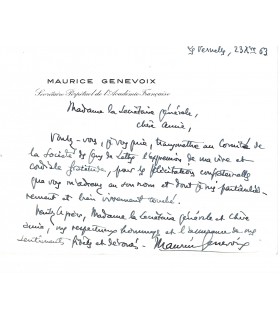 Les Vernelles, 23 Xbre 63
MAURICE GENEVOIX
Secrétaire Perpétuel de l'Académie Française
Madame la Secrétaire générale,
chère amie,
Voulez-vous, je vous prie, transmettre au Comité de
la Société des Gens de Lettres l'expression de ma vive et
cordiale gratitude, pour les félicitations confraternelles
que vous m'adressez en son nom et dont je suis particuliè-
rement et bien vivement touché.
Veuillez agréer, Madame la Secrétaire générale et chère
amie, mes respectueux hommages et l'assurance de mes
sentiments fidèles et dévoués. Maurice Genevoix